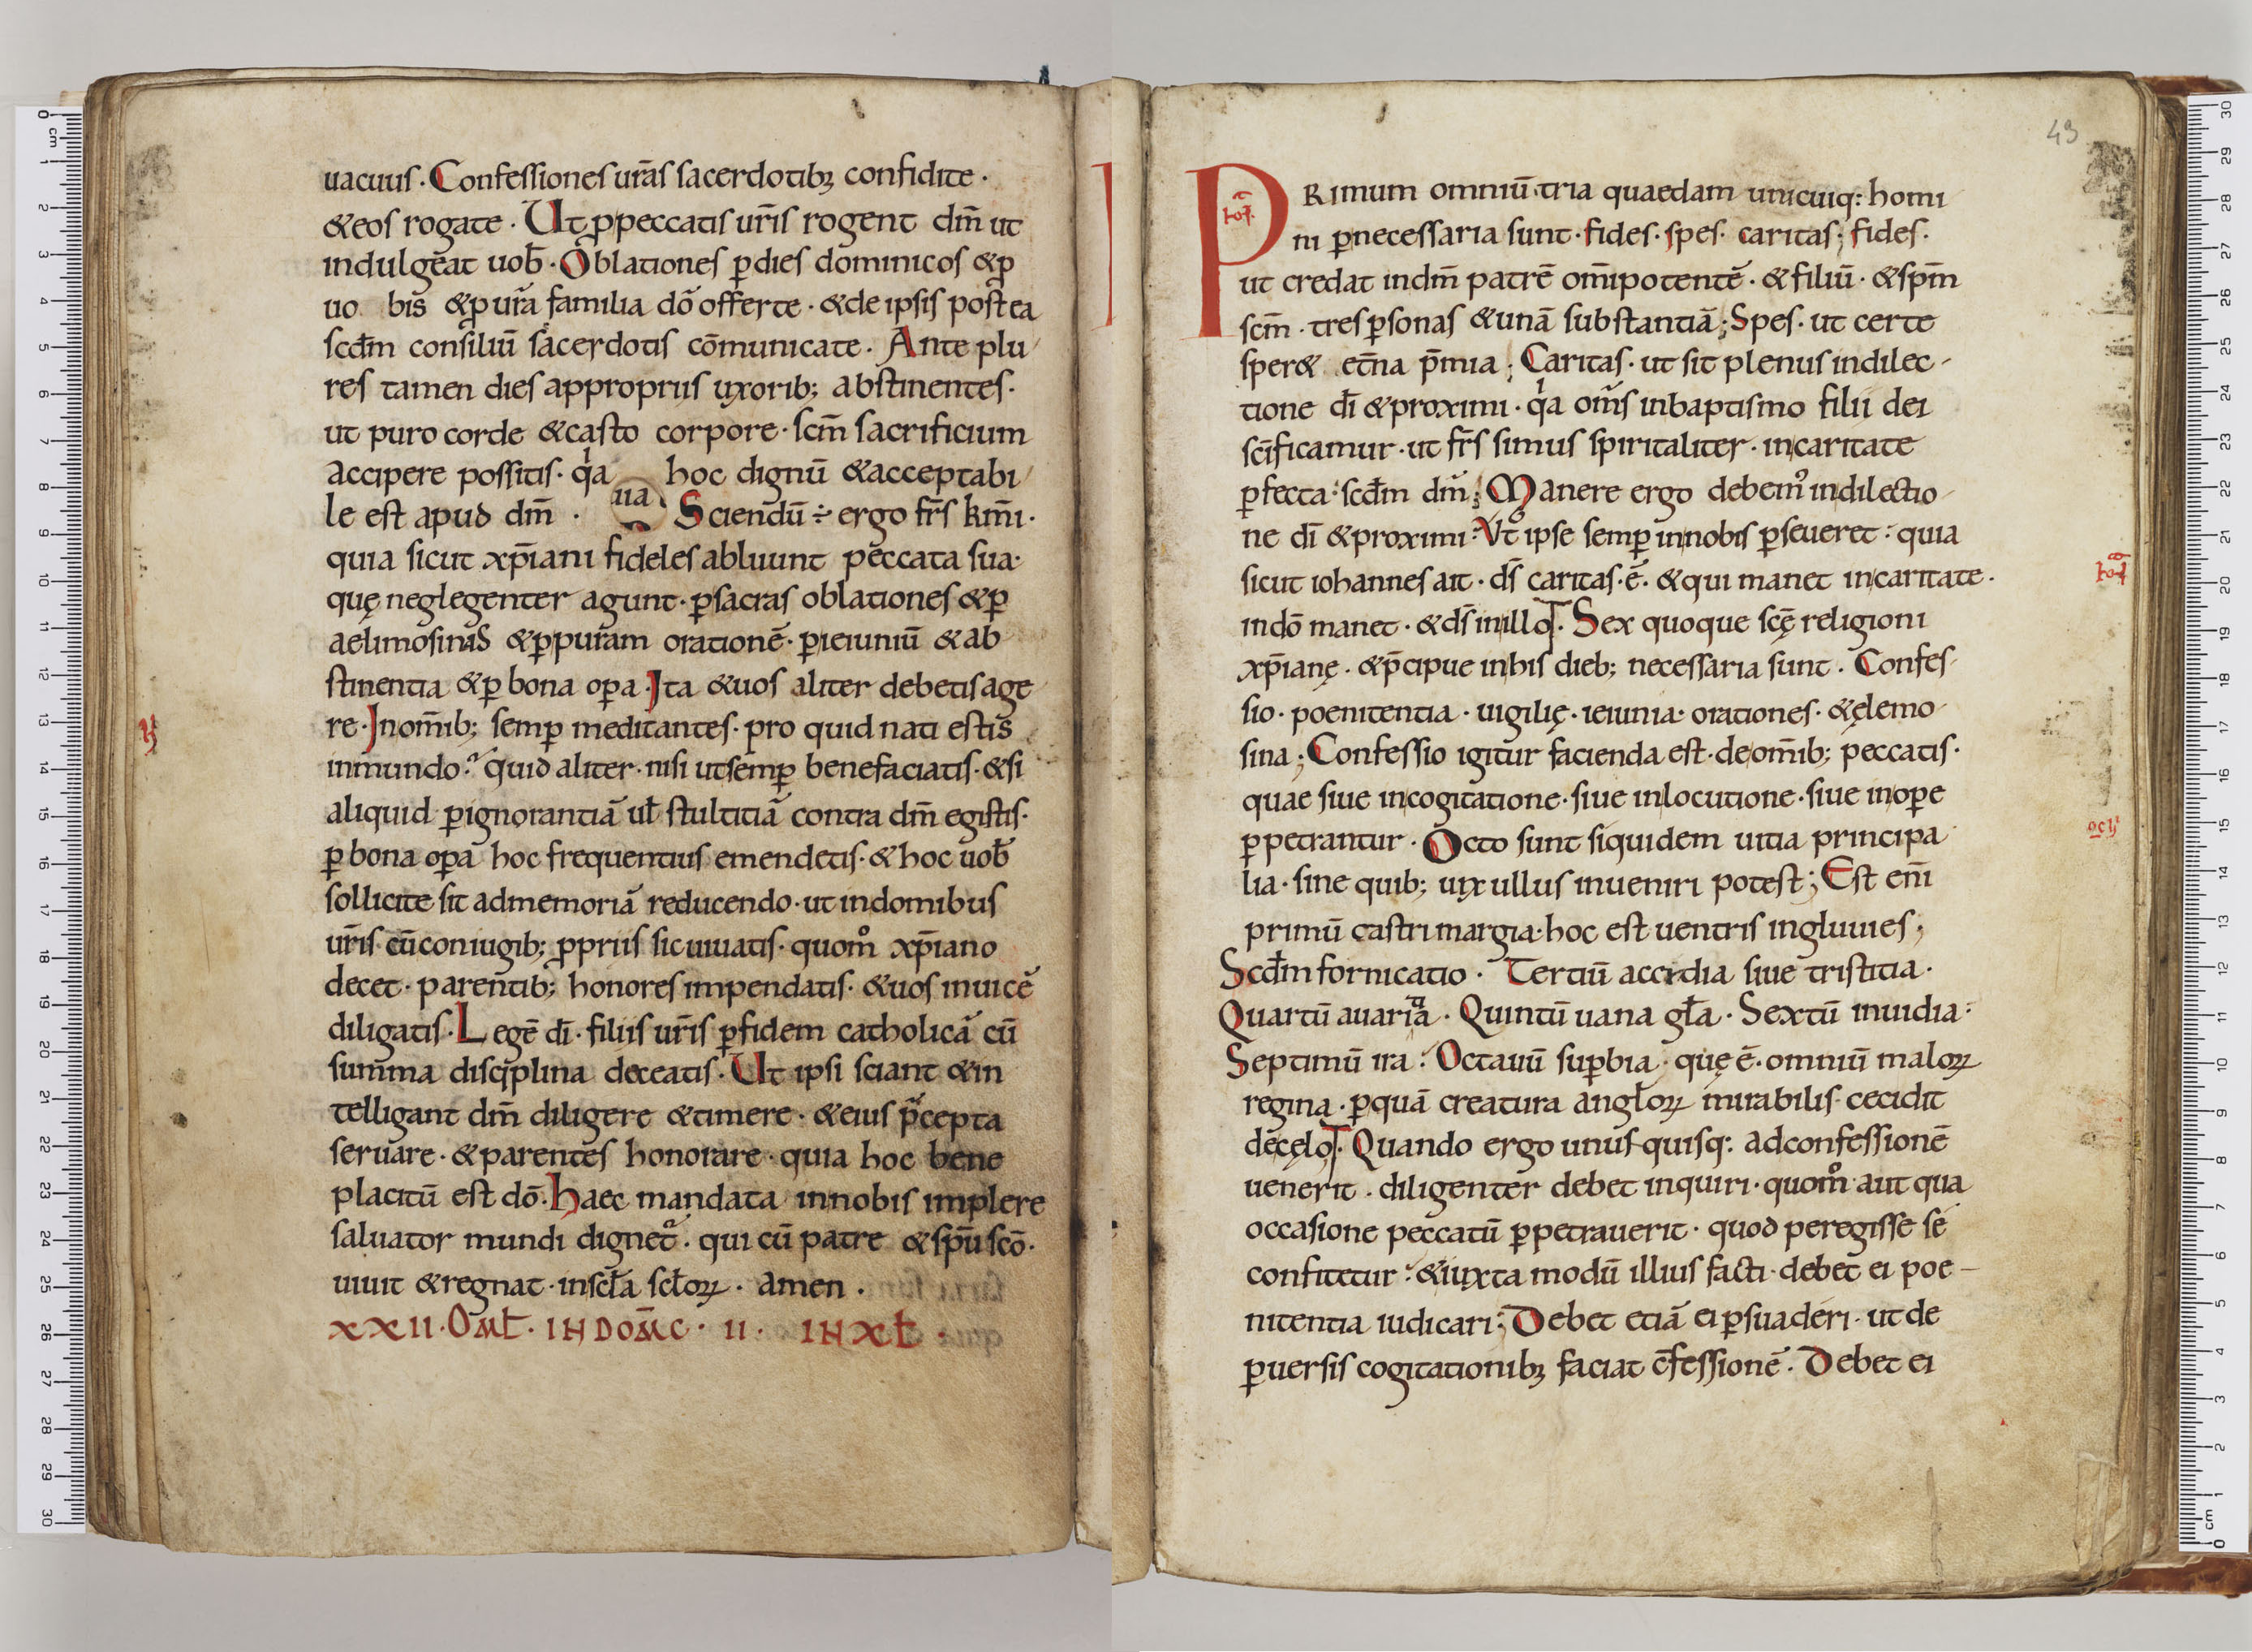 uacuus · Confessiones ur̄as sacerdotibꝫ confidite ·
&eos rogate · Ut ꝓpeccatis ur̄is rogent dm̄ ut
indulgeat uob̄ · Oblationes ꝑdies dominicos &ꝓ
uo bis &ꝓ ur̄a familia dō offerte · &de ipsis postea
scd̄m consiliū sacerdotis cōmunicate · Ante plu
res tamen dies appropriis uxorib; abstinentes ·
ut puro corde &casto corpore · scm̄ sacrificium
accipere possitis · qͥa hoc dignū &acceptabi
le est apud dm̄ · ua Sciendū ÷ ergo fr̄s km̄i ·
quia sicut xp̄iani fideles abluunt peccata sua ·
quę neglegenter agunt · ꝑsacras oblationes &ꝑ
aelimosinas &ꝑpuram orationē · ꝑieiuniū &ab
stinentia &ꝑ bona opa · Ita &uos aliter debetis age
re · Inom̄ib; semꝑ meditantes · pro quid nati estis
inmundo · quid aliter · nisi utsemꝑ benefaciatis · &si
aliquid ꝑignorantiā ul̄ stultitiā contra dm̄ egistis ·
ꝑ bona opa hoc frequentius emendetis · &hoc uob̄
sollicite sit admemoriā reducendo · ut indomibus
ur̄is cūconiugib; ꝓpriis sicuiuatis · quom̊ xp̄iano
decet · parentib; honores impendatis · &uos inuicē
diligatis · Legē dī · filiis ur̄is ꝑfidem catholicā cū
summa disciplina doceatis · Ut ipsi sciant &in
telligant dm̄ diligere &timere · &eius p̄cepta
seruare · &parentes honorare · quia hoc bene
placitū est dō · Haec mandata innobis implere
saluator mundi dignet᷑ · qui cū patre &sp̄u scō ·
uiuit &regnat · inscl̄a scl̄oꝝ · amen ·
XXII · OML̄ · IN DOM̄C · II · IN XL̄ ·
49
PRimum omniū tria quaedam unicuiq: homi
ni ꝑnecessaria sunt · fides · spes · caritas ; fides ·
ut credat indm̄ patrē om̄ipotentē · &filiū · &sp̄m
scm̄ · tres ꝑsonas &unā substantiā ; Spes · ut certe
sper& et̄na p̄mia ; Caritas · ut sit plenus indilec
tione dī &proximi · qͥa om̄s inbaptismo filii dei
scīficamur · ut fr̄s simus spiritaliter · incaritate
ꝑfecta · scd̄m dm̄ ; Manere ergo debem᷒ indilectio
ne dī &proximi · Vt ipse semꝑ innobis ꝑseueret · quia
sicut iohannes ait · ds̄ caritas · ē · &qui manet incaritate ·
indō manet · &ds̄ inillo · Sex quoque scę̄ religioni
xp̄ianę · &p̄cipue inhis dieb; necessaria sunt · Confes
sio · poenitentia · uigilię · ieiunia · orationes · &ęlemo
sina ; Confessio igitur facienda est · deom̄ib; peccatis ·
quae siue incogitatione · siue inlocutione · siue inope
ꝑpetrantur · Octo sunt siquidem uitia principa
lia · sine quib; uix ullus inueniri potest ; Est enī
primū castrimargia · hoc est uentris ingluuies ;
Scd̄m fornicatio · Tertiū accidia siue tristitia ·
Quartū auaritia · Quintū uana gl̄a · Sextū inuidia ·
Septimū ira · Octauū suꝑbia · quę ē · omniū maloꝝ
regina · ꝑquā creatura angl̄oꝝ mirabilis cecidit
decęlo · Quando ergo unus quisq: adconfessionē
uenerit · diligenter debet inquiri · quom̊ aut qua
occasione peccatū ꝑpetrauerit · quod peregisse se
confitetur · &iuxta modū illius facti · debet ei poe
nitentia iudicari ; Debet etiā ei ꝑsuaderi · ut de
ꝑuersis cogitationibꝫ faciat c̄fessionē · Debet ei